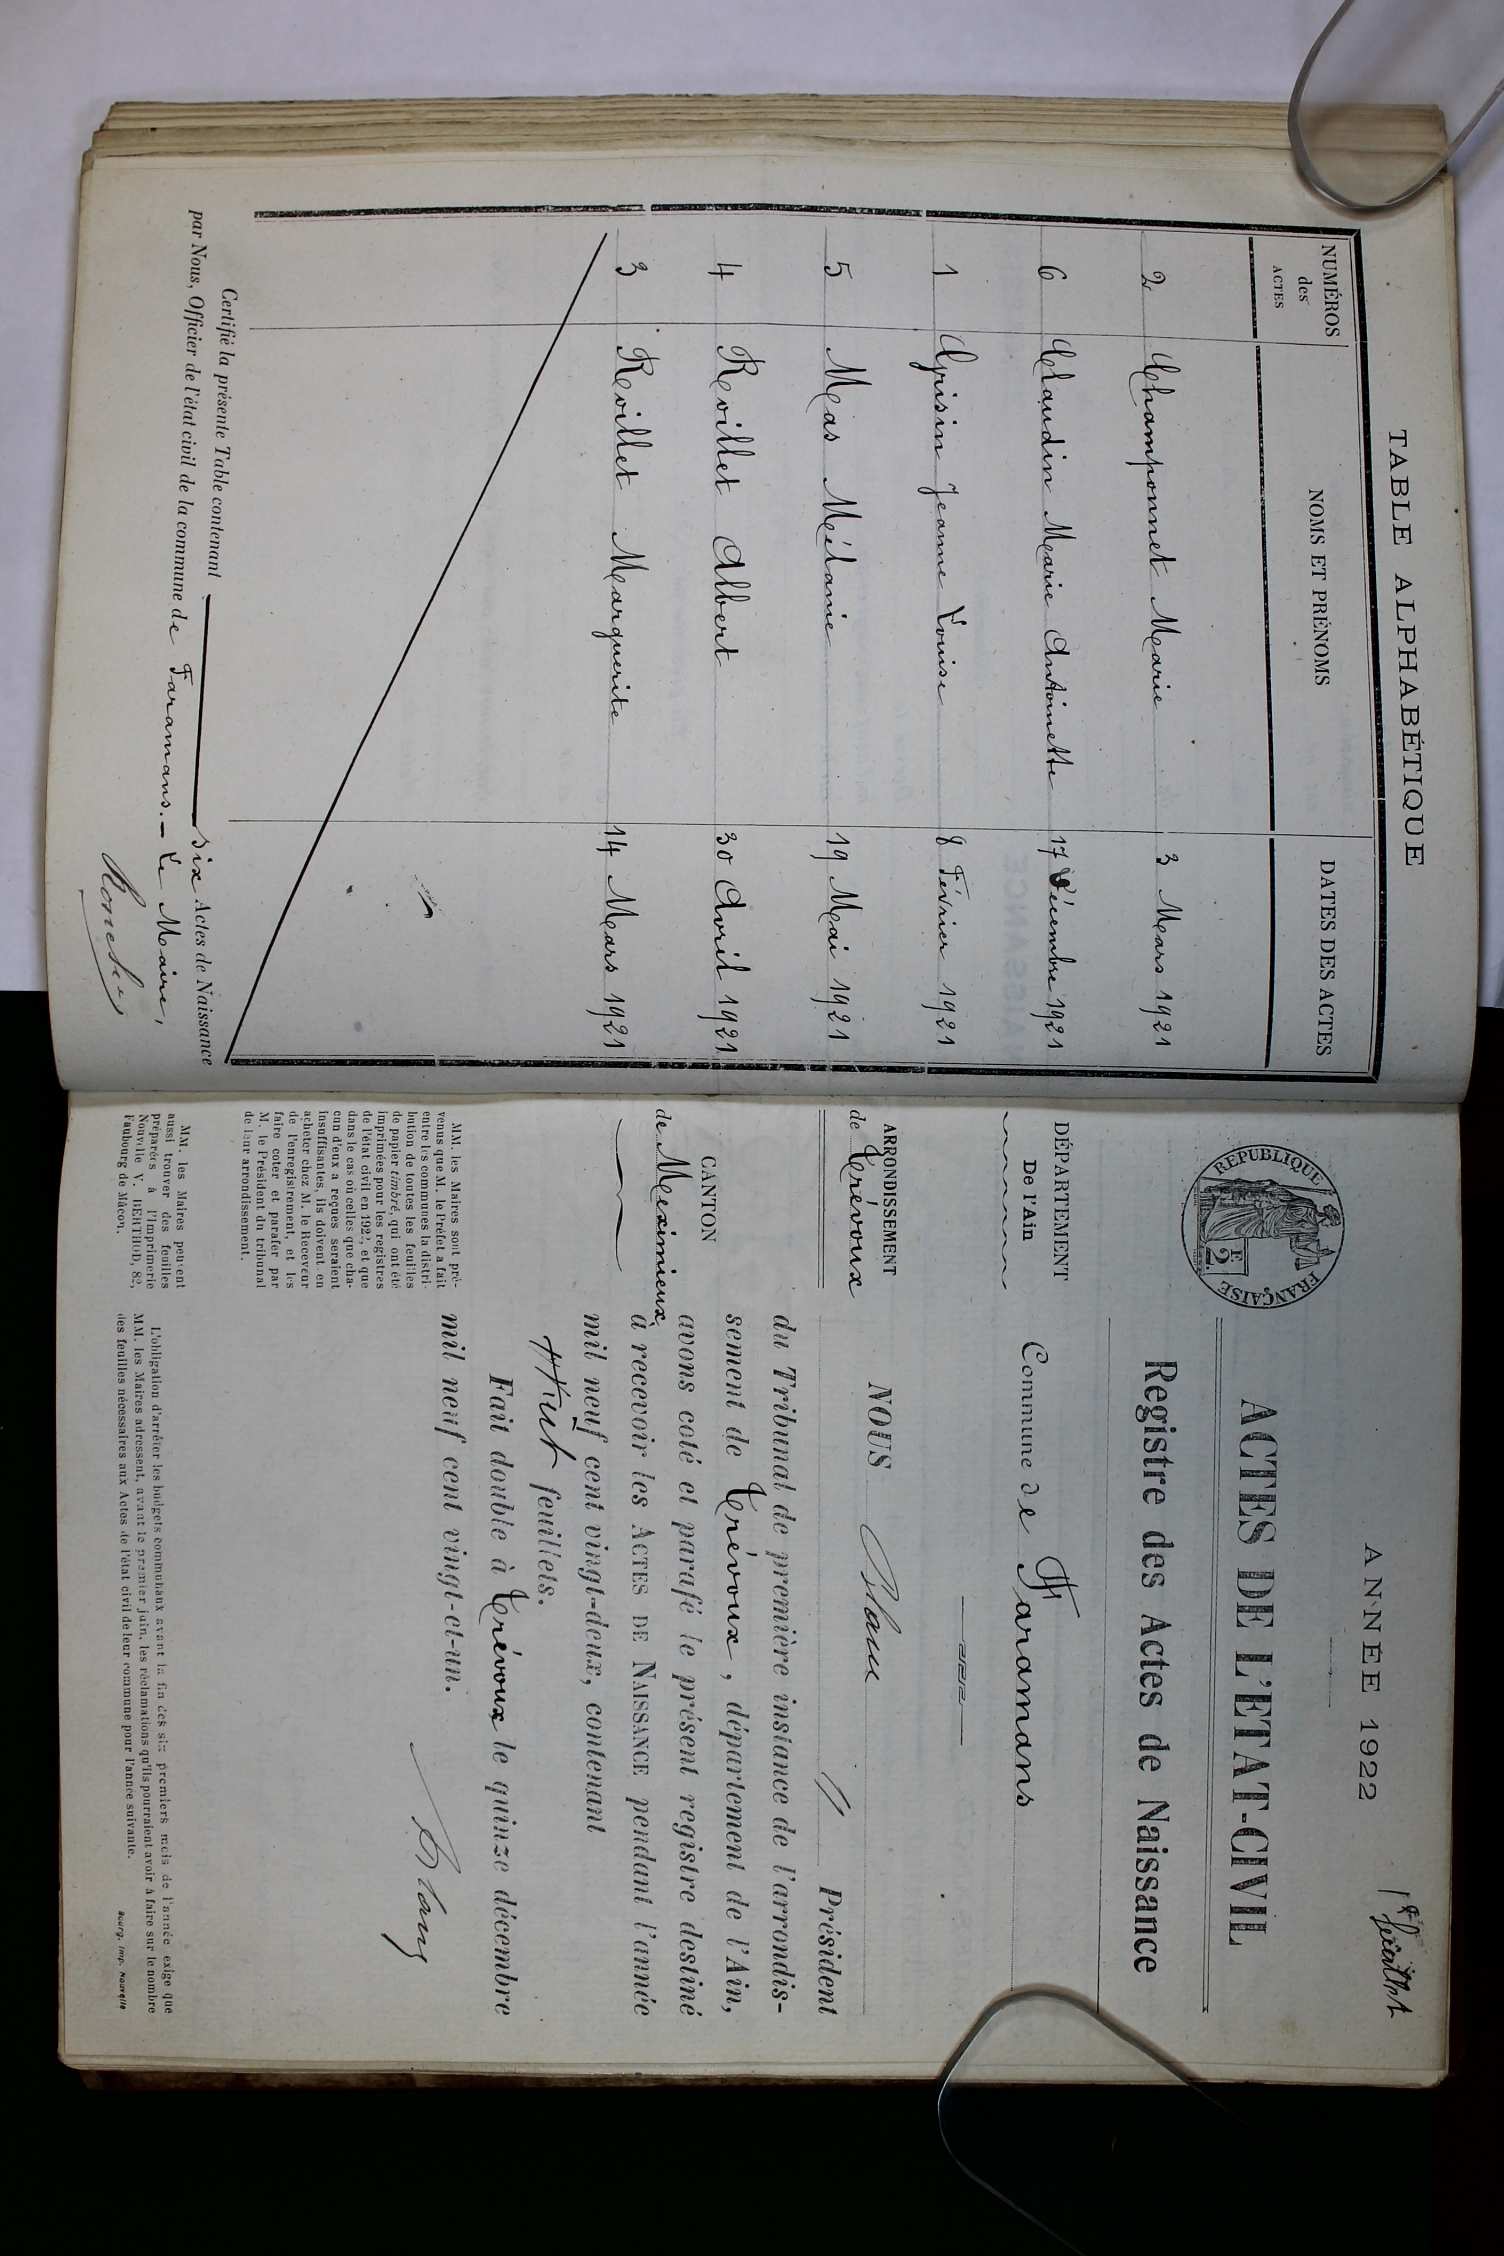 TABLE ALPHABÉTIQUE
NUMÉROS
des
ACTES
NOMS ET PRÉNOMS
DATES DES ACTES
2 Champonnet Marie 3 Mars 1921
6 Claudin Marie Antoinette 17 Décembre 1921
1 Grisin Jeanne Louise 8 Février 1921
5 Mas Mélanie 19 Mai 1921
4 Roillet Albert 30 Avril 1921
3 Roillet Marguerite 14 Mars 1921
Certifié la présente Table contenant six Actes de Naissance
par Nous, Officier de l'état civil de la commune de Faramans. — Le Maire,
ANNÉE 1922
RÉPUBLIQUE FRANÇAISE
2 F
ACTES DE L'ETAT-CIVIL
Registre des Actes de Naissance
DÉPARTEMENT
De l'Ain
Commune de Faramans
ARRONDISSEMENT
de Trévoux
CANTON
de Meximieux
NOUS
Président
du Tribunal de première instance de l'arrondis-
sement de Trévoux, département de l'Ain,
avons coté et parafé le présent registre destiné
à recevoir les ACTES DE NAISSANCE pendant l'année
mil neuf cent vingt-deux, contenant
Huit feuillets.
Fait double à Trévoux le quinze décembre
mil neuf cent vingt-et-un.
MM. les Maires sont pré-
venus que M. le Préfet a fait
entre les communes la distri-
bution de toutes les feuilles
de papier timbré, qui ont été
imprimées pour les registres
de l'état civil en 1922, et que
dans le cas où celles que cha-
cun d'eux a reçues seraient
insuffisantes, ils doivent en
acheter chez M. le Receveur
de l'enregistrement, et les
faire coter et parafer par
M. le Président du tribunal
de leur arrondissement.
MM. les Maires peuvent
aussi trouver des feuilles
préparées à l'Imprimerie
Nouvelle V. BERTHOD, 82,
Faubourg de Mâcon.
L'obligation d'arrêter les budgets communaux avant la fin des six premiers mois de l'année exige que
MM. les Maires adressent, avant le premier juin, les réclamations qu'ils pourraient avoir à faire sur le nombre
des feuilles nécessaires aux Actes de l'état civil de leur commune pour l'année suivante.
Bourg, Imp. Nouvelle